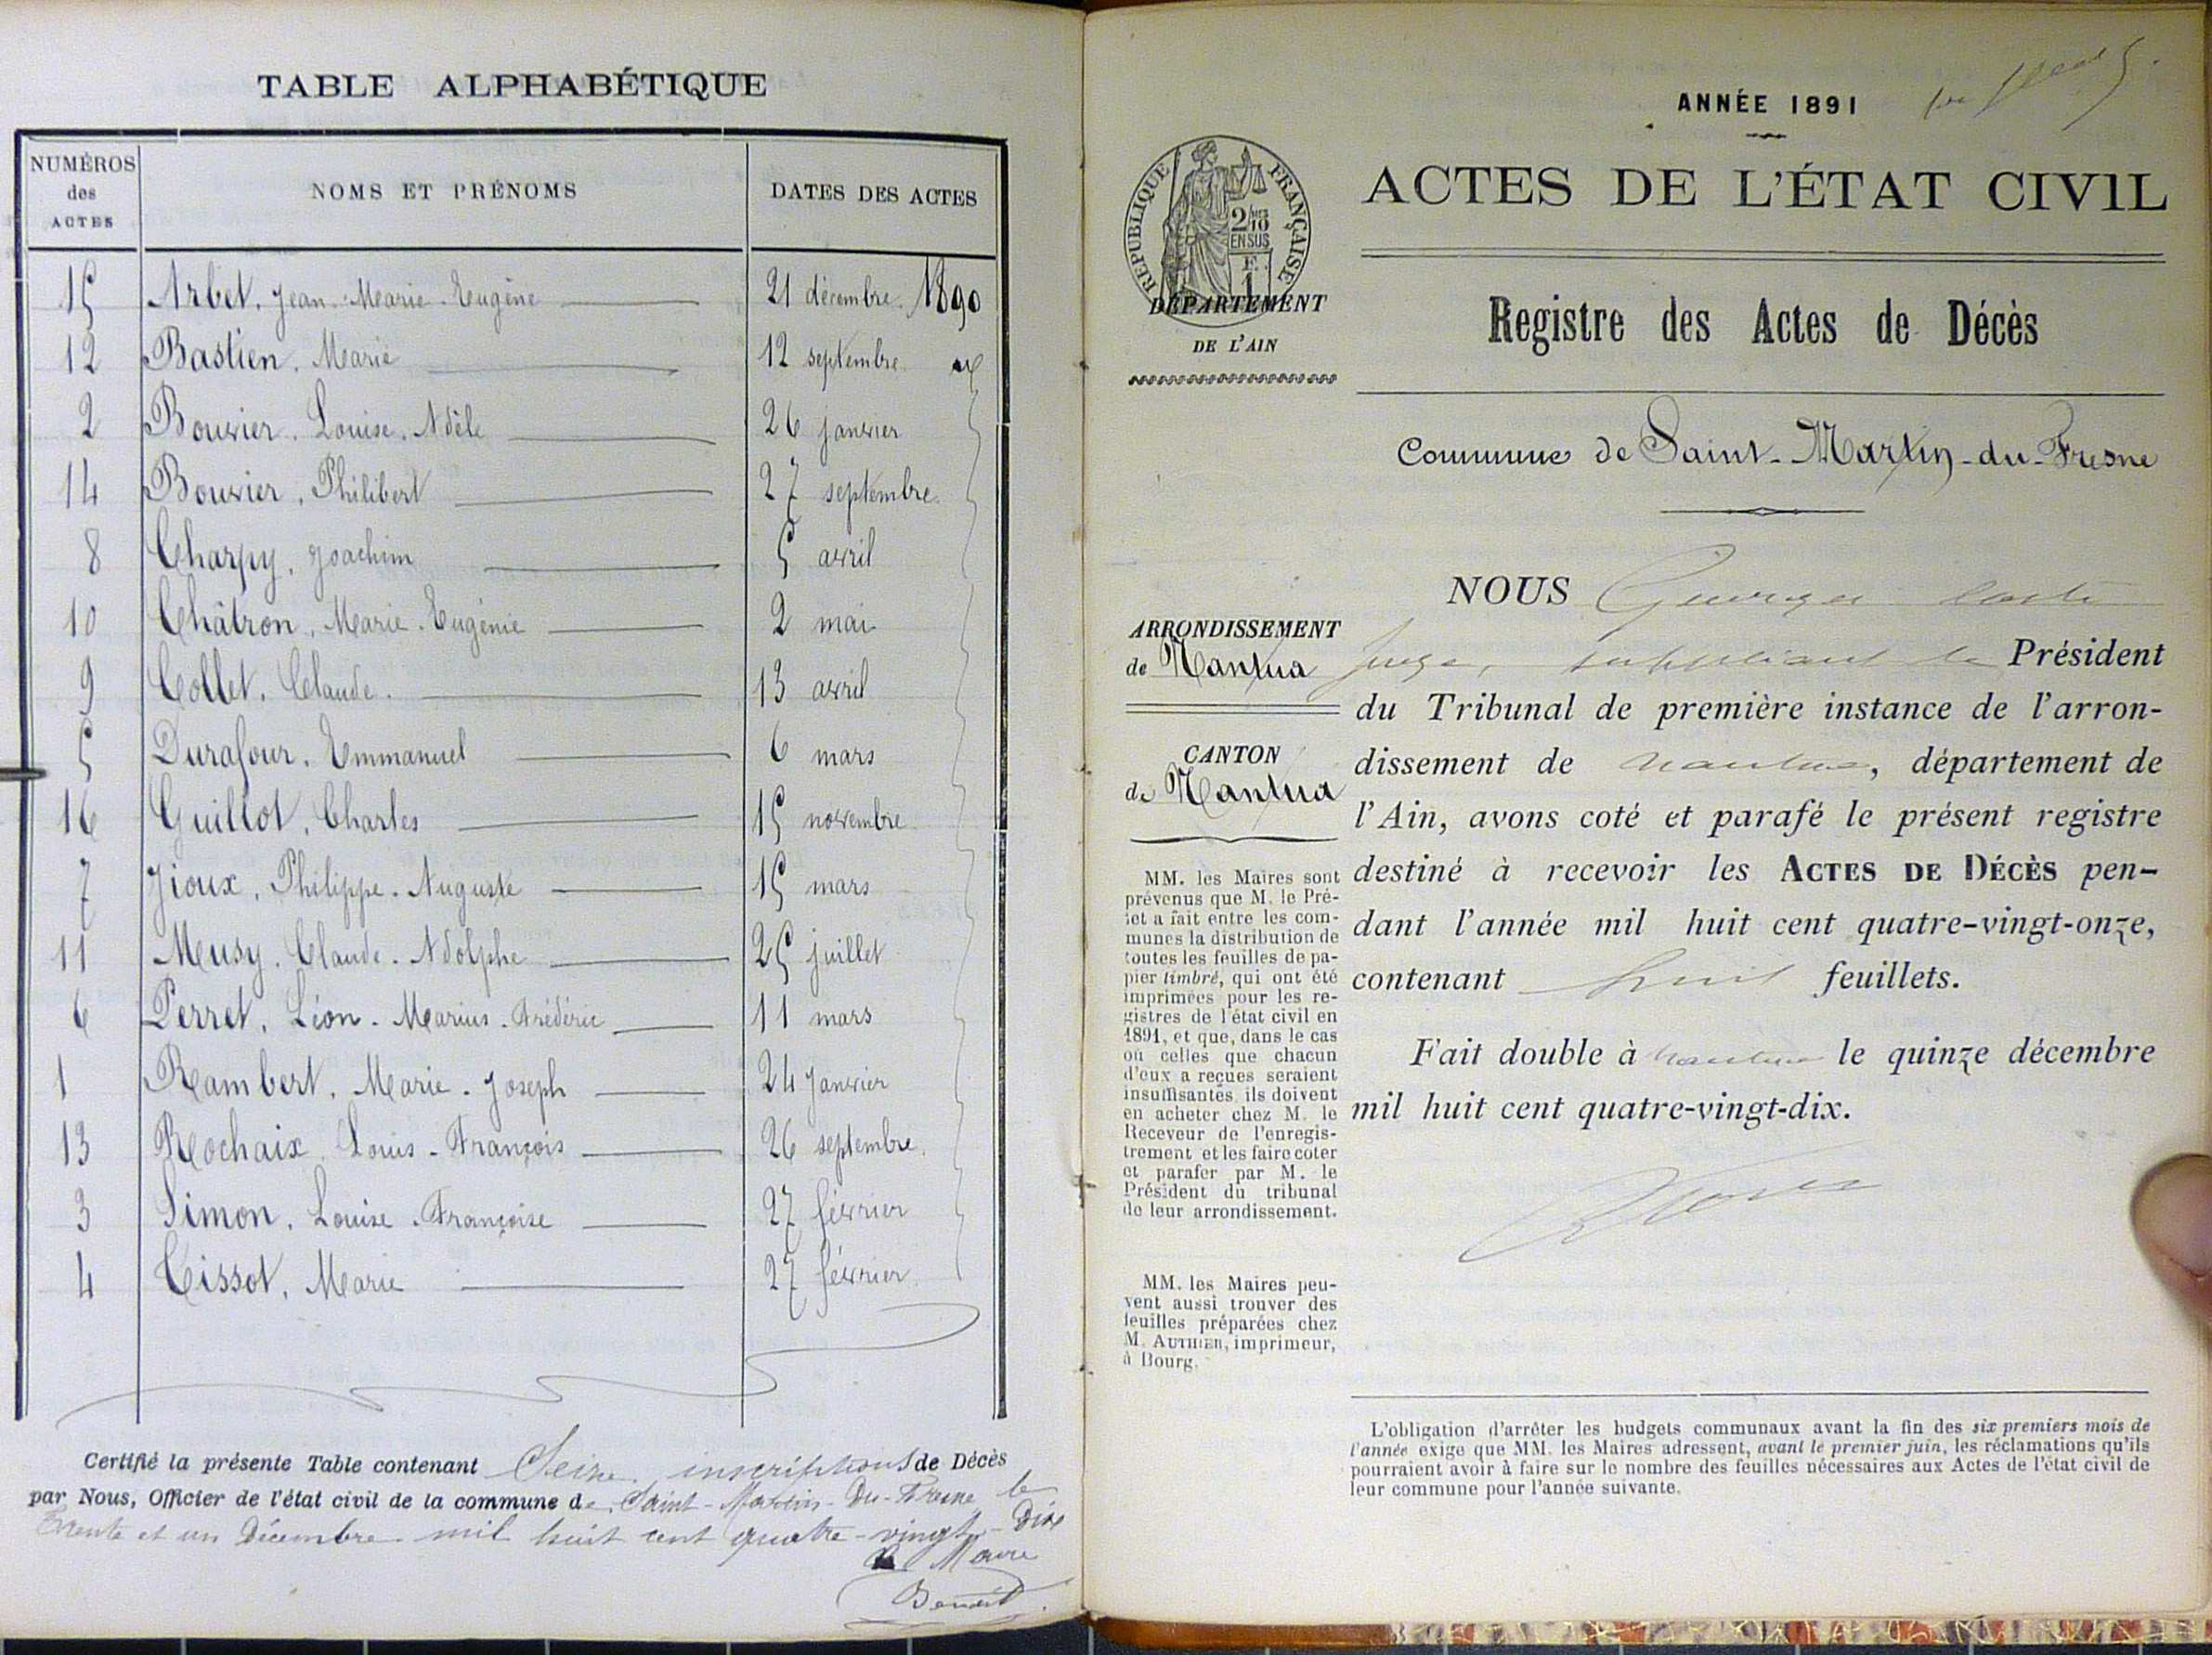 TABLE ALPHABÉTIQUE
NUMÉROS des ACTES NOMS ET PRÉNOMS DATES DES ACTES
15 Arbet, Jean-Marie-Eugène 21 décembre 1890
12 Bastien, Marie 12 septembre
2 Bouvier, Louise, Adèle 26 janvier
14 Bouvier, Philibert 27 septembre
8 Charpy, Joachim 5 avril
10 Châtron, Marie-Eugénie 2 mai
9 Collet, Claude 13 avril
5 Durafour, Emmanuel 6 mars
16 Guillot, Charles 15 novembre
7 Jioux, Philippe-Auguste 15 mars
11 Musy, Claude-Adolphe 25 juillet
6 Perret, Léon-Marius-Frédéric 11 mars
1 Rambert, Marie-Joseph 24 janvier
13 Rochaix, Louis-François 26 septembre
3 Simon, Louise-Françoise 27 février
4 Tissot, Marie 27 février
Certifié la présente Table contenant Seize inscriptions de Décès
par Nous, Officier de l'état civil de la commune de Saint-Martin-Du-Fresne le
Trente et un Décembre mil huit cent quatre-vingt-Dix
Le Maire
Benoit
ANNÉE 1891
RÉPUBLIQUE FRANÇAISE
2/10 EN SUS
ACTES DE L'ÉTAT CIVIL
DÉPARTEMENT
DE L'AIN
Registre des Actes de Décès
Commune de Saint-Martin-du-Fresne
ARRONDISSEMENT
de Nantua
CANTON
de Nantua
MM. les Maires sont
prévenus que M. le Pré-
fet a fait entre les com-
munes la distribution de
toutes les feuilles de pa-
pier timbré, qui ont été
imprimées pour les re-
gistres de l'état civil en
1891, et que, dans le cas
où celles que chacun
d'eux a reçues seraient
insuffisantes, ils doivent
en acheter chez M. le
Receveur de l'enregis-
trement et les faire coter
et parafer par M. le
Président du tribunal
de leur arrondissement.
MM. les Maires peu-
vent aussi trouver des
feuilles préparées chez
M. AUTHIER, imprimeur,
à Bourg.
NOUS Georges
juge, suppléant le Président
du Tribunal de première instance de l'arron-
dissement de Nantua, département de
l'Ain, avons coté et parafé le présent registre
destiné à recevoir les ACTES DE DÉCÈS pen-
dant l'année mil huit cent quatre-vingt-onze,
contenant huit feuillets.
Fait double à Nantua le quinze décembre
mil huit cent quatre-vingt-dix.
L'obligation d'arrêter les budgets communaux avant la fin des six premiers mois de
l'année exige que MM. les Maires adressent, avant le premier juin, les réclamations qu'ils
pourraient avoir à faire sur le nombre des feuilles nécessaires aux Actes de l'état civil de
leur commune pour l'année suivante.